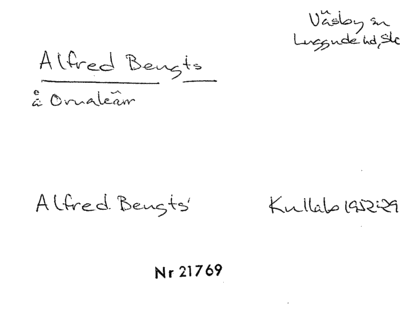 Väsby sn
Luggude hd, Sk
Alfred Bengts
å Ornakärr
Alfred Bengts'
Kullab 1952:29
Nr 21769